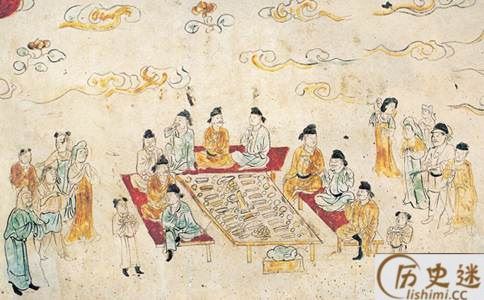 历史迷
lishimi.cc